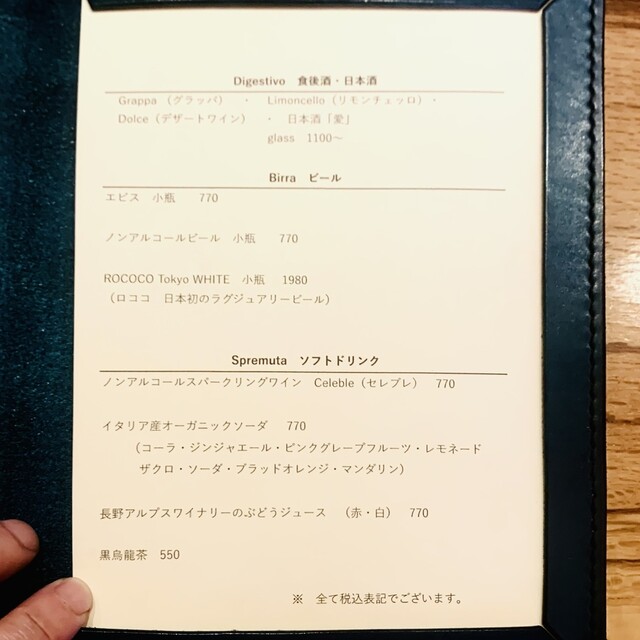 Digestivo 食後酒・日本酒
Grappa（グラッパ） ・ Limoncello（リモンチェッロ）・
Dolce（デザートワイン） ・ 日本酒「愛」
glass 1100～
Birra ビール
エビス 小瓶 770
ノンアルコールビール 小瓶 770
ROCOCO Tokyo WHITE 小瓶 1980
（ロココ 日本初のラグジュアリービール）
Spremuta ソフトドリンク
ノンアルコールスパークリングワイン Celeble（セレブレ） 770
イタリア産オーガニックソーダ 770
（コーラ・ジンジャエール・ピンクグレープフルーツ・レモネード
ザクロ・ソーダ・ブラッドオレンジ・マンダリン）
長野アルプスワイナリーのぶどうジュース （赤・白） 770
黒烏龍茶 550
※ 全て税込表記でございます。